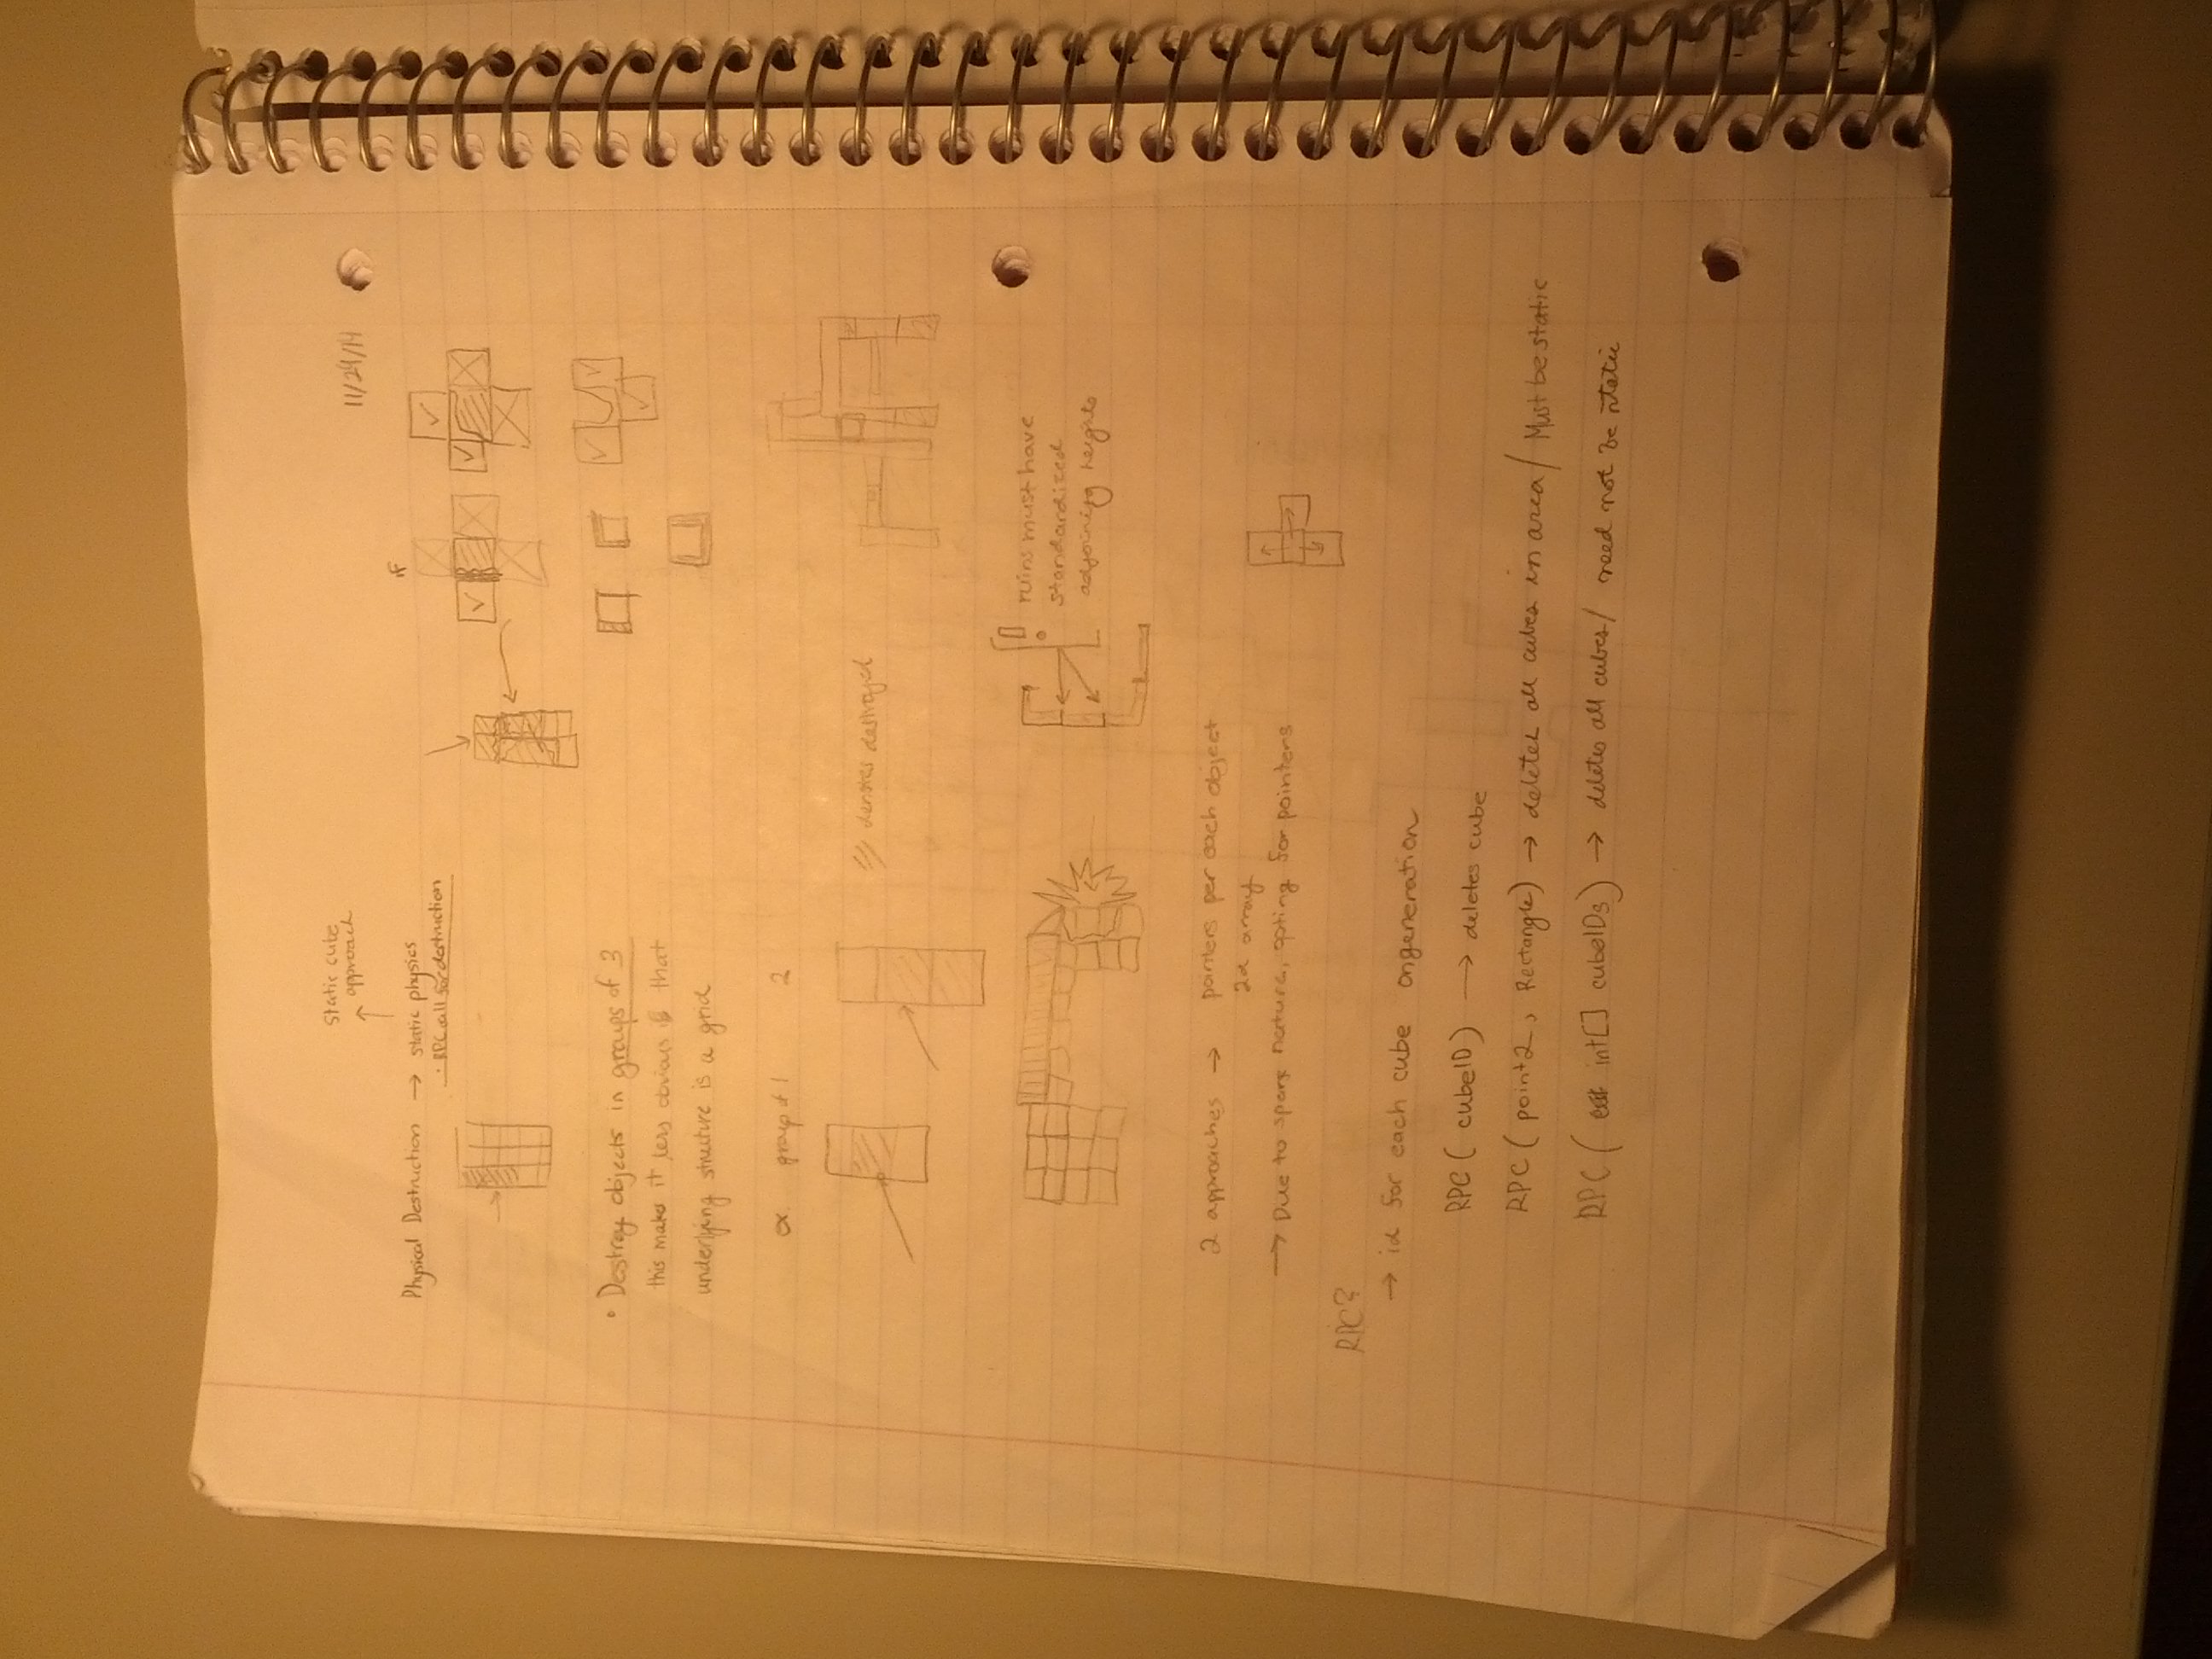 11/24/14
static cube
approach
Physical Destruction → static physics
· RPC call for destruction
if
• Destroy objects in groups of 3
this makes it less obvious that
underlying struture is a grid
or group of 1 2
/// denotes destroyed
ruins must have
standardized
adjoining heights
2 approaches → pointers per each object
2d array
→ Due to spars nature, opting for pointers
RPC?
→ id for each cube on generation
RPC ( cubeID ) → deletes cube
RPC ( point2, Rectangle) → deletes all cubes in area / Must be static
RPC ( int[] cubeIDs ) → deletes all cubes / need not be static